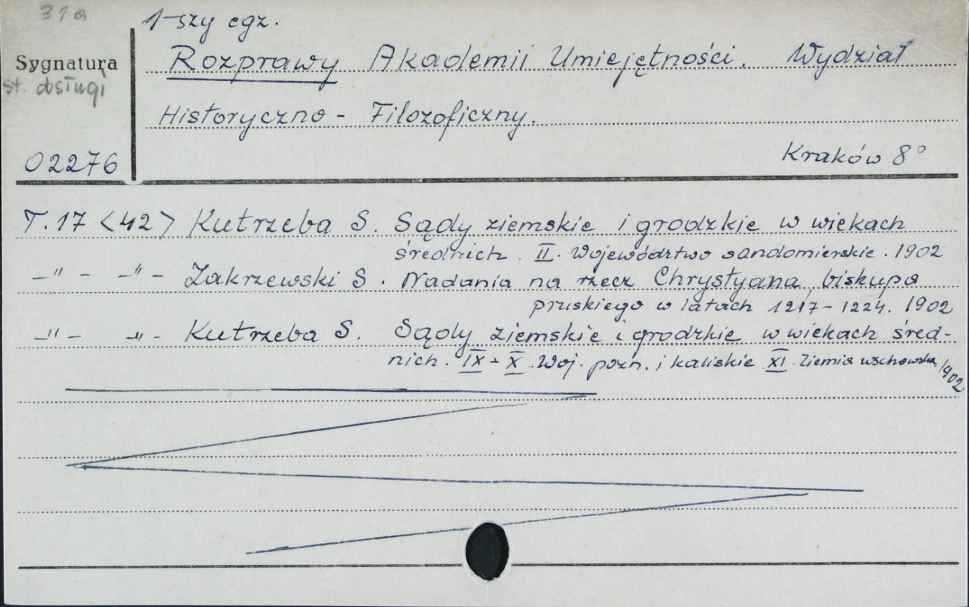 31a
1-szy egz.
Sygnatura
Rozprawy Akademii Umiejętności. Wydział
Historyczno - Filozoficzny.
02276
Kraków 8°
T. 17 <42> Kutrzeba S. Sądy ziemskie i grodzkie w wiekach
średnich. II. Województwo sandomierskie. 1902
-"- -"- Zakrzewski S. Nadania na rzecz Chrystyana, biskupa
pruskiego w latach 1217-1224. 1902
-"- -"- Kutrzeba S. Sądy ziemskie i grodzkie w wiekach śred-
nich. IX - X. Woj. pozn. i kaliskie XI. Ziemia wschowska 1902